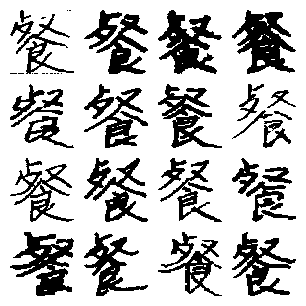 餐餐餐餐
餐餐餐餐
餐餐餐餐
餐餐餐餐